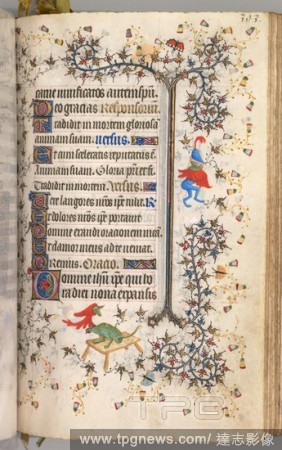 313
autem spu.
Deo gracias Responsoriu
Tradidit in mortem gloriosa
animam suam. versus.
Et cum sceleratis reputatus e.
Animam suam. Gloria pri et f.
Tradidit in mortem. Versus.
Vere langores nros ipe tulit. R
Et dolores nros ipe portauit
Domine exaudi orationem mea
Et clamor meus ad te ueniat.
Oremus. Oracio.
Domine ihu xpe qui
nona expansis
TPG
www.tpgnews.com / 達志影像